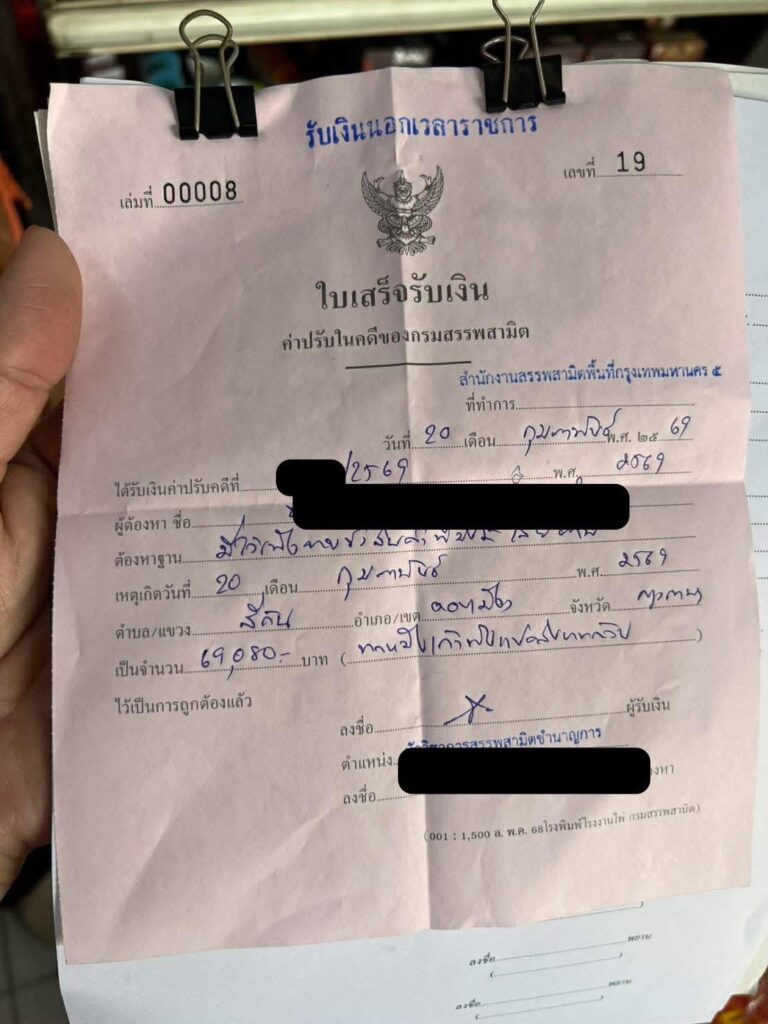 รับเงินนอกเวลาราชการ
เล่มที่ 00008
เลขที่ 19
ใบเสร็จรับเงิน
ค่าปรับในคดีของกรมสรรพสามิต
สำนักงานสรรพสามิตพื้นที่กรุงเทพมหานคร ๕
ที่ทำการ
วันที่ 20 เดือน กุมภาพันธ์ พ.ศ. ๒๕ 69
ได้รับเงินค่าปรับคดีที่ /2569 พ.ศ. ๒๕69
ผู้ต้องหา ชื่อ
ต้องหาฐาน มีไว้เพื่อขายซึ่งสินค้า
เหตุเกิดวันที่ 20 เดือน กุมภาพันธ์ พ.ศ ๒๕69
ตำบล/แขวง สีกัน อำเภอ/เขต ดอนเมือง จังหวัด กรุงเทพฯ
เป็นจำนวน 69,080.- บาท (หกหมื่นเก้าพันแปดสิบบาทถ้วน)
ไว้เป็นการถูกต้องแล้ว
ลงชื่อ ผู้รับเงิน
ตำแหน่ง นักวิชาการสรรพสามิตชำนาญการ
ลงชื่อ
(001 : 1,500 ล. พ.ค. 68โรงพิมพ์โรงงานไพ่ กรมสรรพสามิต)
ลงชื่อ พยาน
ลงชื่อ พยาน